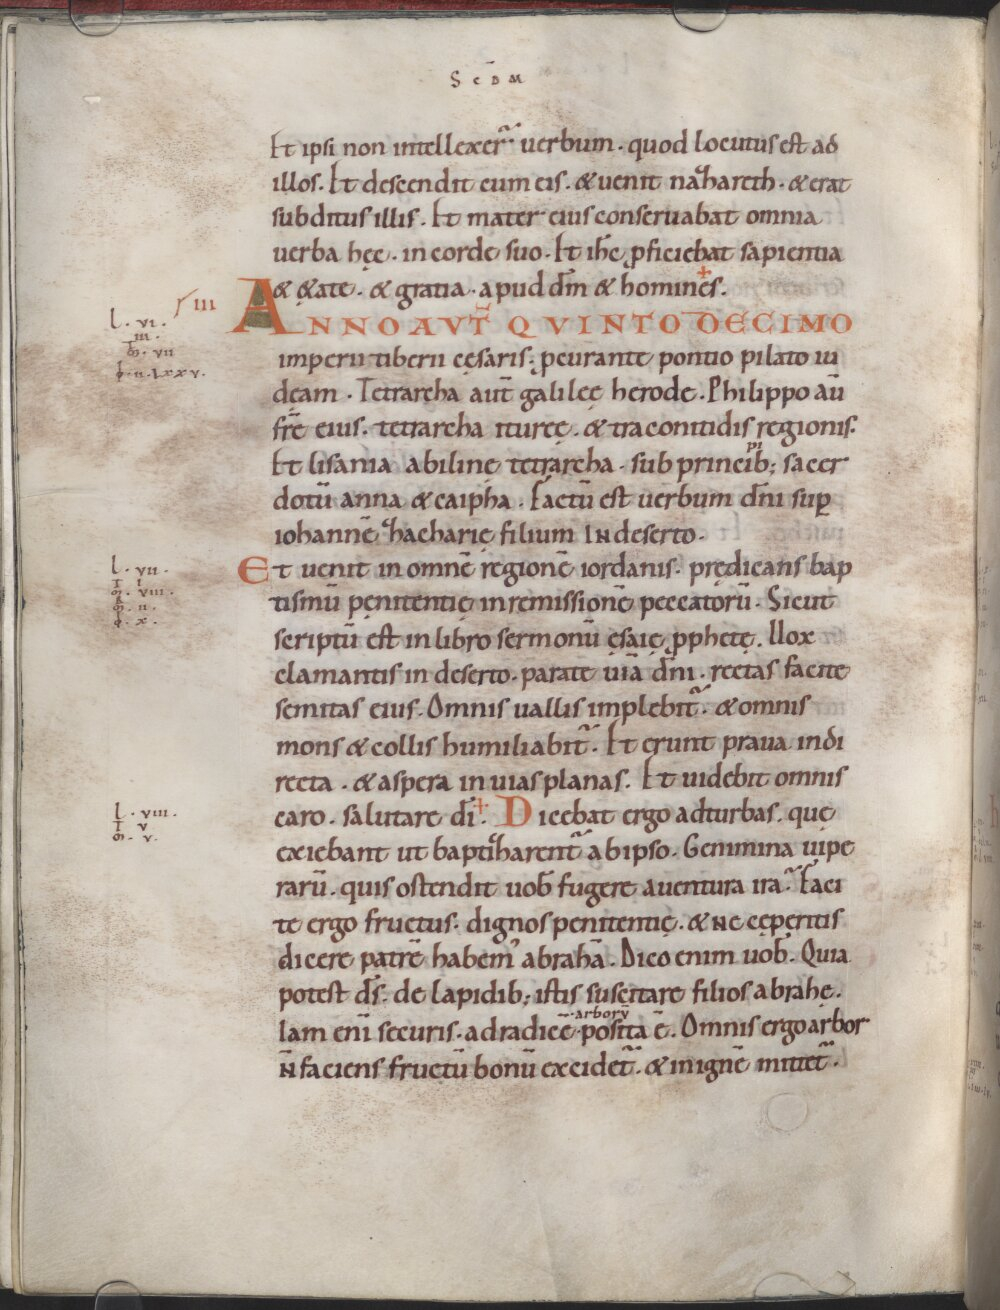 Scd̄m
Et ipsi non intellexer̄ uerbum. quod locutus est ad
illos. Et descendit cum eis. & uenit nazhareth. & erat
subditus illis. Et mater eius conseruabat omnia
uerba hęc. in corde suo. Et ih̄c ꝓficiebat sapientia
& ętate. & gratia. apud dm̄ & homines.
III
ANNO AVT̄ QVINTODECIMO
l. vi.
iii.
m̄. vii
imperii tiberii cęsaris; ꝓcurante pontio pilato iu
i. ii. lxxv.
dęam. Tetrarcha aut̄ galilęę herode. Philippo aū
fr̄e eius. tetrarcha ituręę. & traconitidis regionis.
Et lisania abilinę tetrarcha. sub principib; sacer
dotū anna & caipha. Factū est uerbum dn̄i sup̄
iohannē zhacharię filium IN deserto.
l. vii.
T i
m̄. viii.
m̄. ii.
i. x.
Et uenit in omnē regionē iordanis. prędicans bap
tismū pęnitentię in remissionē peccatorū. Sicut
scriptū est in libro sermonū ęsaię ꝓphetę. Uox
clamantis in deserto. parate uiā dn̄i. rectas facite
semitas eius. Omnis uallis implebit̄. & omnis
mons & collis humiliabit̄. Et erunt praua indi
recta. & aspera in uias planas. Et uidebit omnis
l. viii.
T v
m̄. v.
caro. salutare dī. Dicebat ergo ad turbas. quę
exiebant ut baptizharent̄ ab ipso. Genimina uipe
rarū. quis ostendit uob̄ fugere a uentura ira. Faci
te ergo fructus. dignos penitentię. & Ne cęperitis
dicere patrē habem' abrahā. Dico enim uob̄. Quia
potest d̄s. de lapidib; istis suscitare filios abrahę.
Iam enī securis. ad radicē arborū posita ē. Omnis ergo arbor
N̄ faciens fructū bonū excidet̄. & in ignē mittet̄.